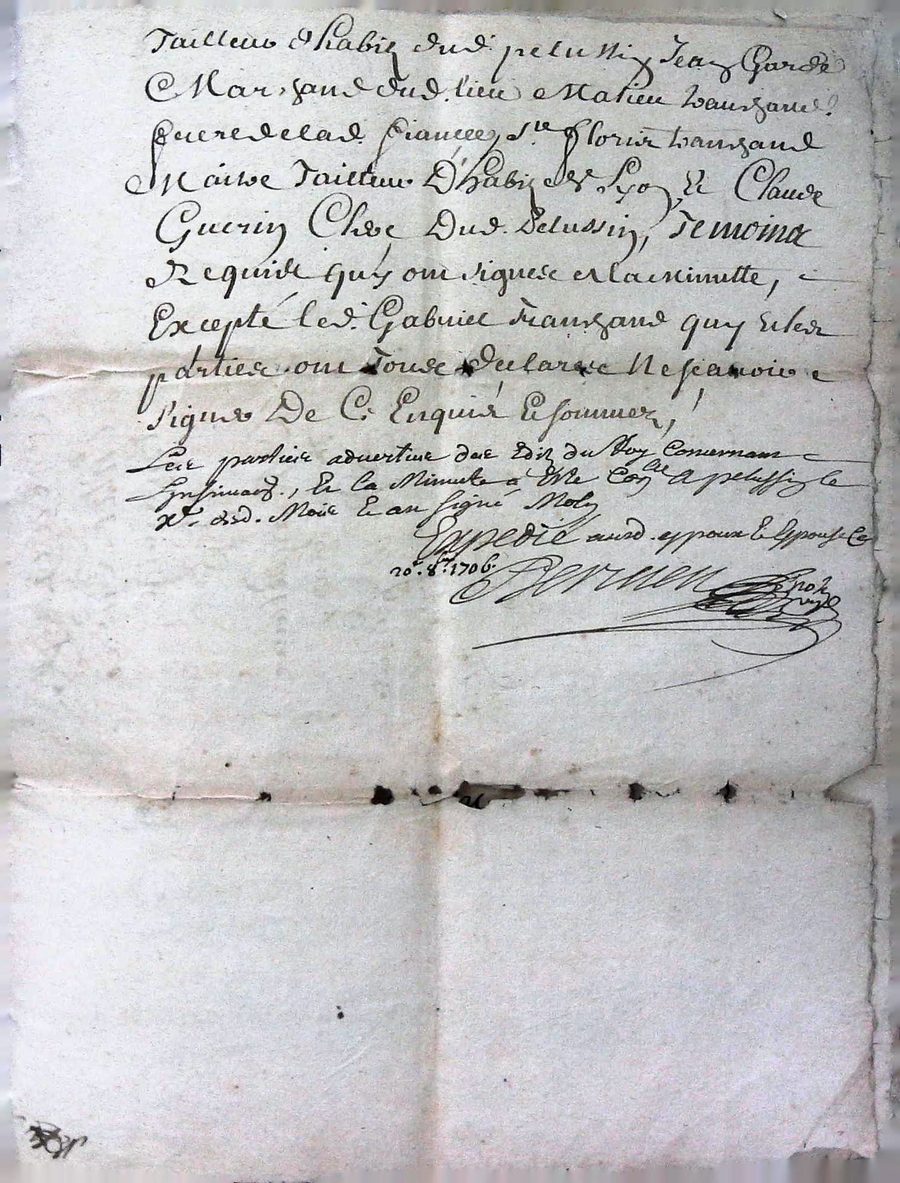 Tailleur d'habis dud. pelussin Jean Garde
Marchand dud. lieu Matieu tranchand
frere de lad. fiancée, Sr. floris tranchand
Maitre Tailleur D'habis de Lyon, Et Claude
Guerin Clerc Dud. Pelussin, Temoins
Requis quy ont signes a la Minutte,
Excepté led. Gabriel Tranchand quy et les
parties ont Tous declares Ne scavoir
signer De Ce Enquis Et sommez,
Les parties adverties des Edit du Roy Concernant
Insinuaon., Et la Minute a Esté Conlée A pelussin le
xe. desd. Mois Et an signé Moly
Expedié ausd. espoux Et Espouse Ce
20e. 8re. 1706.